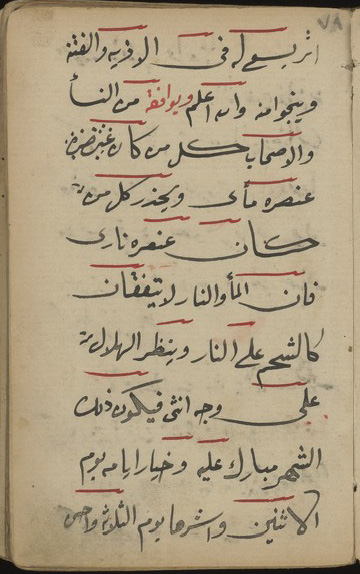 ٧٨
اثر يسعى له فى الاذيه والفتنة
وينجوا منه والله اعلم ويوافقه من النسأ
والاصحاب كل من كان
عنصره مأى ويحذر كل من
كان عنصره نارى
فان المأ والنار لا يتفقان
كالشحم على النار وينظر الهلال
على وجه انثى فيكون ذلك
الشهر مبارك عليه وخيار ايامه يوم
الاثنين واشرها يوم الثلاث